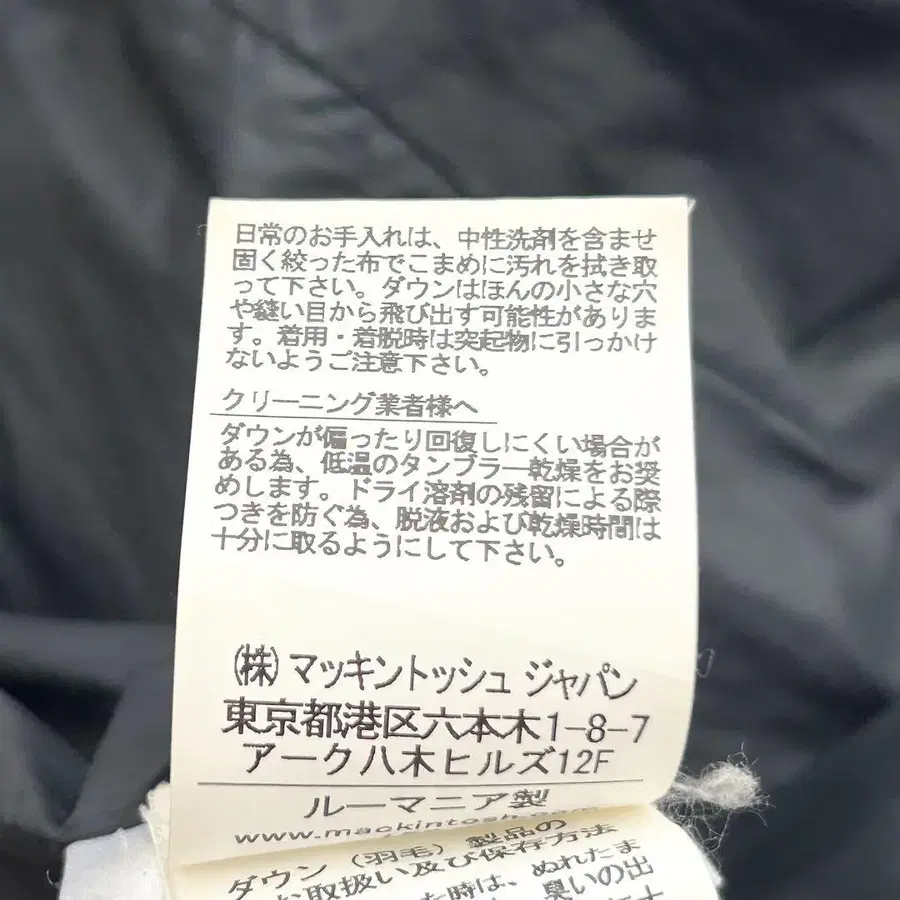 日常のお手入れは、中性洗剤を含ませ
固く絞った布でこまめに汚れを拭き取
って下さい。ダウンはほんの小さな穴
や縫い目から飛び出す可能性がありま
す。着用・着脱時は突起物に引っかけ
ないようご注意下さい。
クリーニング業者様へ
ダウンが偏ったり回復しにくい場合が
ある為、低温のタンブラー乾燥をお奨
めします。ドライ溶剤の残留による際
つきを防ぐ為、脱液および乾燥時間は
十分に取るようにして下さい。
(株) マッキントッシュ ジャパン
東京都港区六本木1-8-7
アーク八木ヒルズ12F
ルーマニア製
www.mackintosh.com
ダウン（羽毛）製品の
お取扱い及び保存方法
た時は、ぬれたま
臭いの出